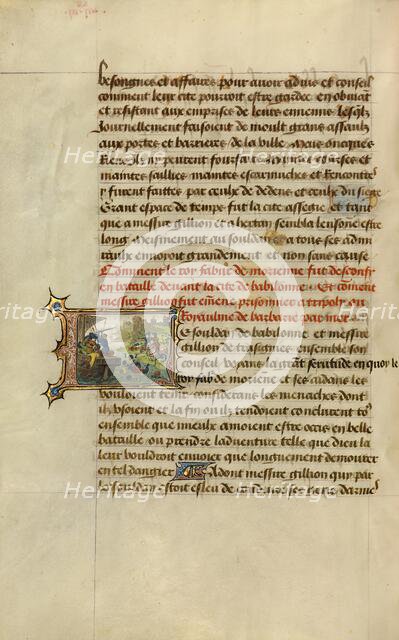 besongnes et affaires pour avoir aduis et conseil
comment leur cite pourroit estre gardee en obuiāt
et resistant aux emprises de leurs ennemis lesq̃lz
Journellement faisoient de moult grans assaulz
aux portes et barrieres de la ville Mais oncques
Riens ny peurent courses et
maintes saillies maintes escarmuches et Rencontres
y furent faittes par ceulx de dedens et ceulx du siege
Grant espace de temps fut la cite assiegie et tant
que a messire gillion et a hertan sembla lenfonc estre
long au souldan a tous ses admi
raulx ennoyoit grandement et non sans cause
Comment le roy fabur de morienne fut desconfi
en bataille deuant la cite de babilonne Et cōment
messire gillion fut emene prisonnier a tripoly en
Royaulme de barbarie par mer
Le souldan de babilonne et messire
gillion de trasignies ensemble son
conseil voyans la grāt seruitude en quoy le
roy fabur de morienne et ses aidans les
vouloient tenir considerans les menaches dont
ilz vsoient et la fin ou ilz tendoient conclurent to9
ensemble que mieulx amoient estre occis en belle
bataille ou prendre laduenture telle que dieu la
leur vouldroit enuoier que longuement demourer
en tel dangier Adont messire gillion qui par
le souldan estoit esleu de darmes
Heritage
Heritage
Heritage
Heritage
Heritage
Heritage
Heritage
Heritage